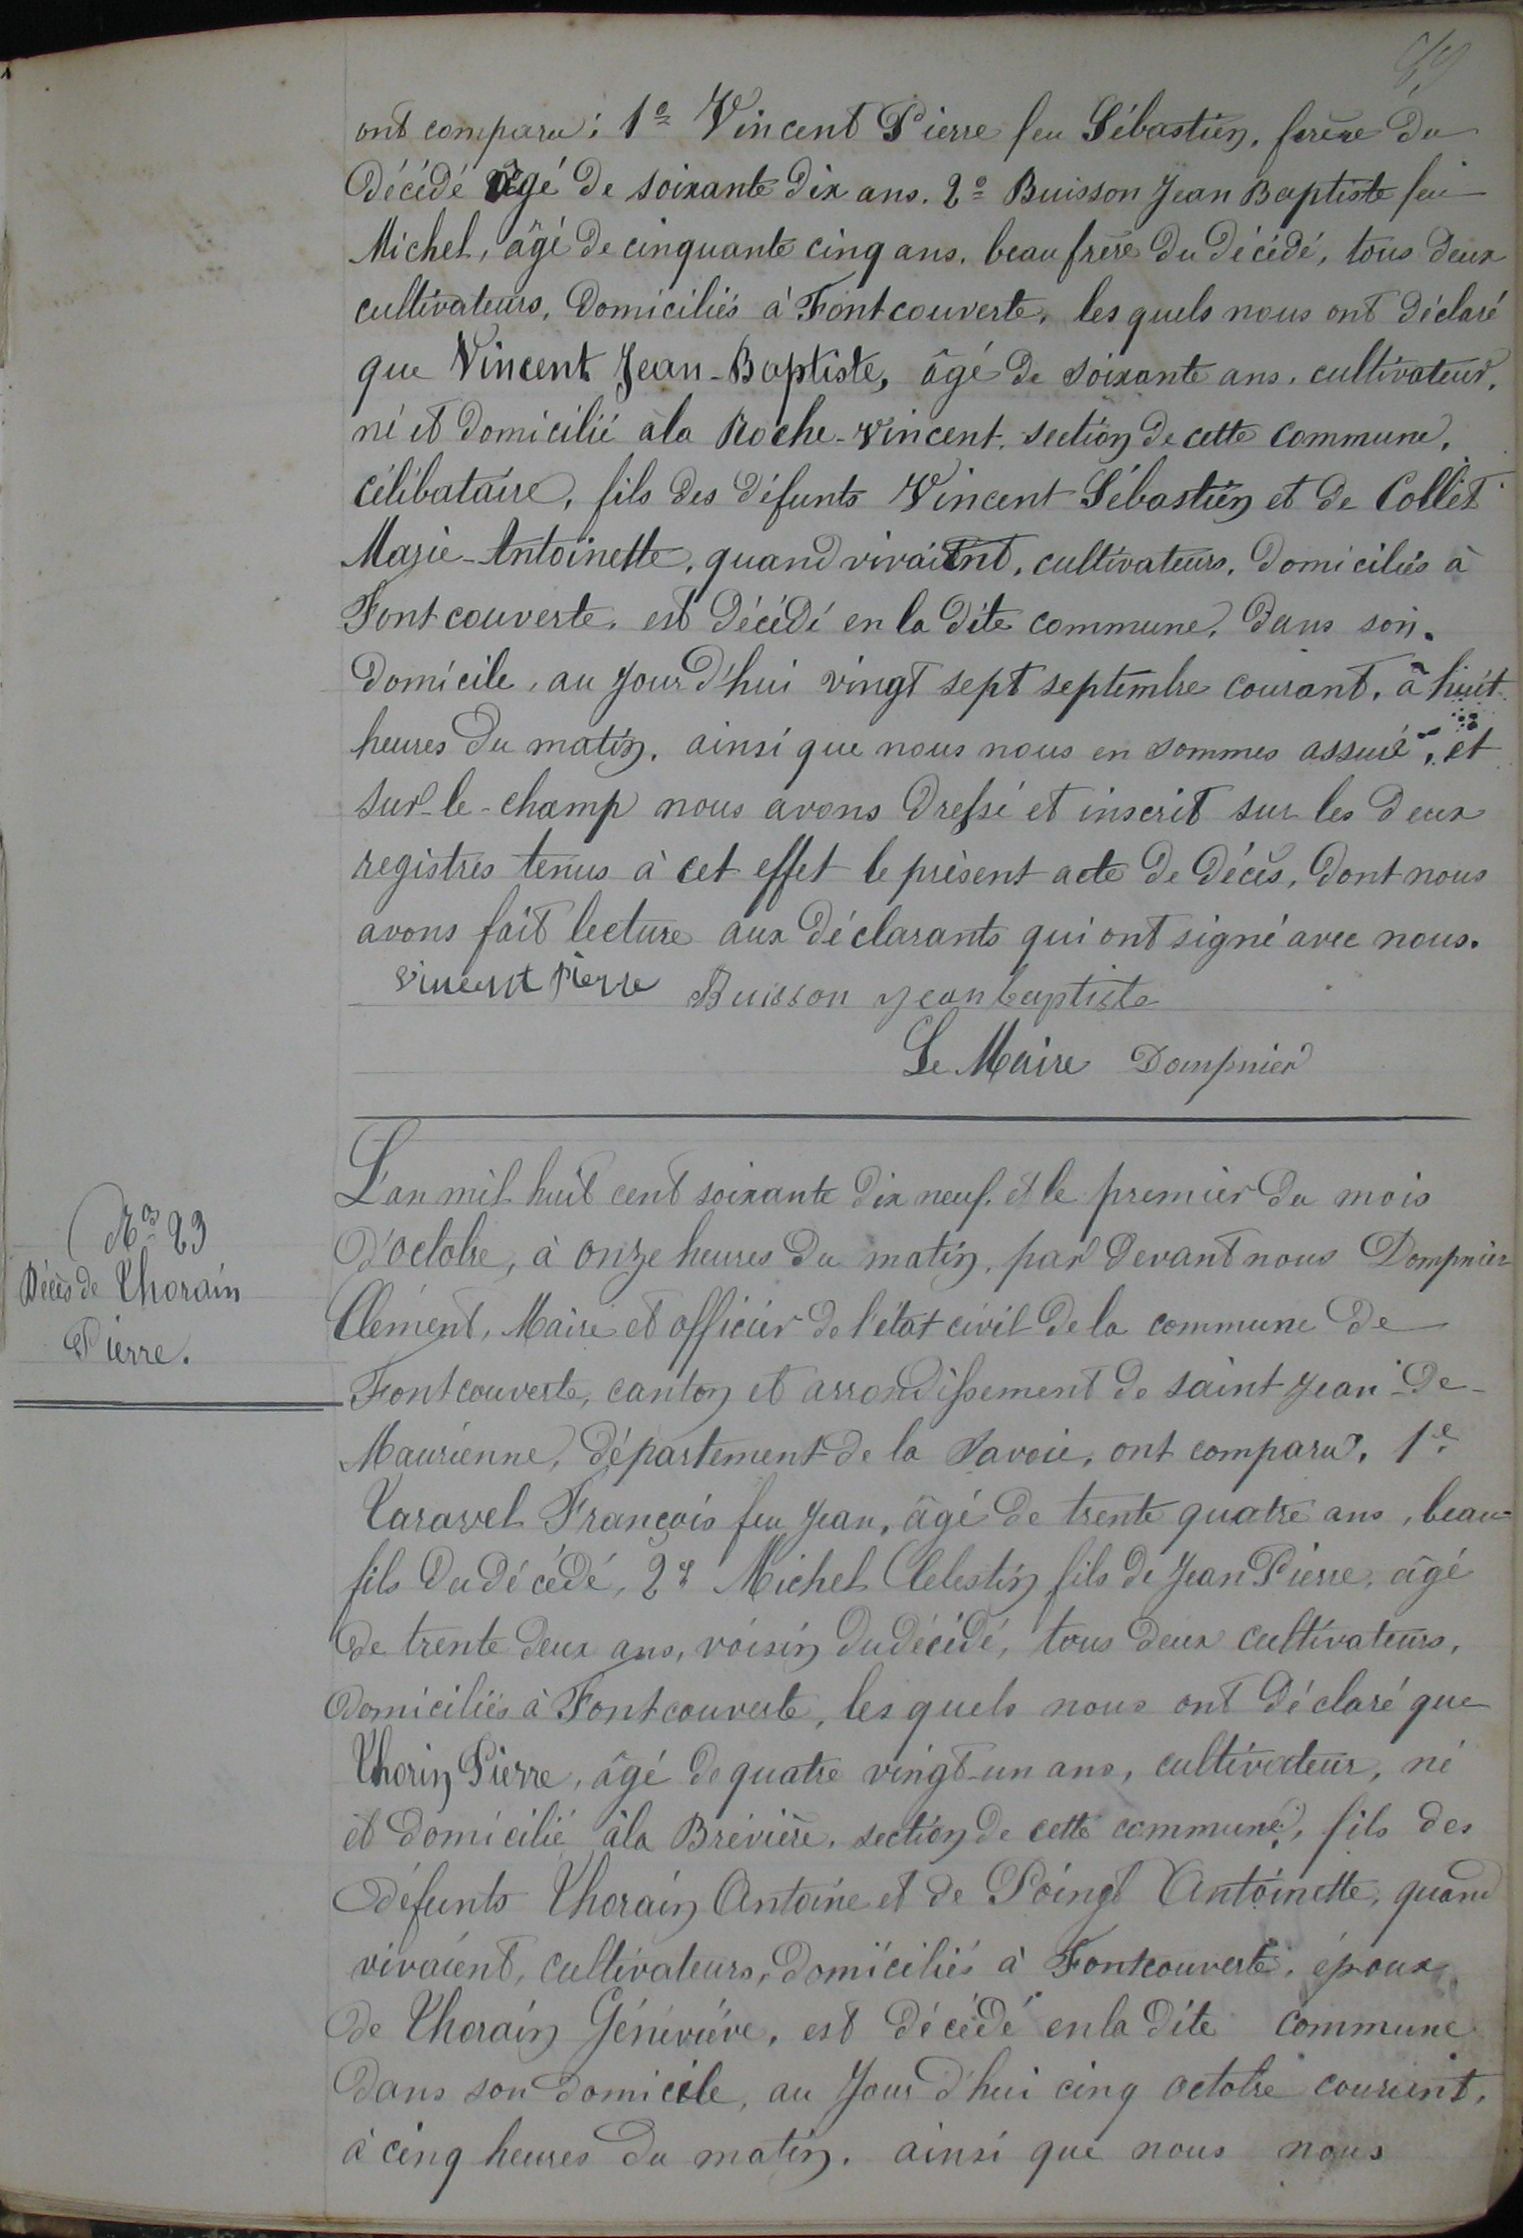 ont comparu : 1° Vincent Pierre feu Sébastien, frère du
décédé âgé de soixante dix ans. 2° Buisson Jean Baptiste feu
Michel, âgé de cinquante cinq ans, beau frère du décédé, tous deux
cultivateurs, domiciliés à Fontcouverte, les quels nous ont déclaré
que Vincent Jean-Baptiste, âgé de soixante ans, cultivateur,
né et domicilié à la Roche-Vincent, section de cette commune,
célibataire, fils des défunts Vincent Sébastien et de Collet
Marie-Antoinette, quand vivaient, cultivateurs, domiciliés à
Fontcouverte, est décédé en la dite commune, dans son
domicile, au jour d'hui vingt sept septembre courant, à huit
heures du matin, ainsi que nous nous en sommes assuré, et
sur-le-champ nous avons dressé et inscrit sur les deux
registres tenus à cet effet le présent acte de décès, dont nous
avons fait lecture aux déclarants qui ont signé avec nous.
Vincent Pierre Buisson jean baptiste
Le Maire Dompnier
N° 23
Décès de Thorain
Pierre.
L'an mil huit cent soixante dix neuf, et le premier du mois
d'octobre, à onze heures du matin, par devant nous Dompnier
Clément, Maire et officier de l'état civil de la commune de
Fontcouverte, canton et arrondissement de saint Jean-de-
Maurienne, département de la Savoie, ont comparu, 1e
Taravel François feu Jean, âgé de trente quatre ans, beau-
fils du décédé, 2e Michel Celestin fils de Jean Pierre, âgé
de trente deux ans, voisin du décédé, tous deux cultivateurs,
domiciliés à Fontcouverte, les quels nous ont déclaré que
Thorin Pierre, âgé de quatre vingt-un ans, cultivateur, né
et domicilié à la Brévière, section de cette commune, fils des
défunts Thorain Antoine et de Poingt Antoinette, quand
vivaient, cultivateurs, domiciliés à Fontcouverte, époux
de Thorain Généviève, est décédé en la dite commune
dans son domicile, au jour d'hui cinq octobre courant,
à cinq heures du matin, ainsi que nous nous